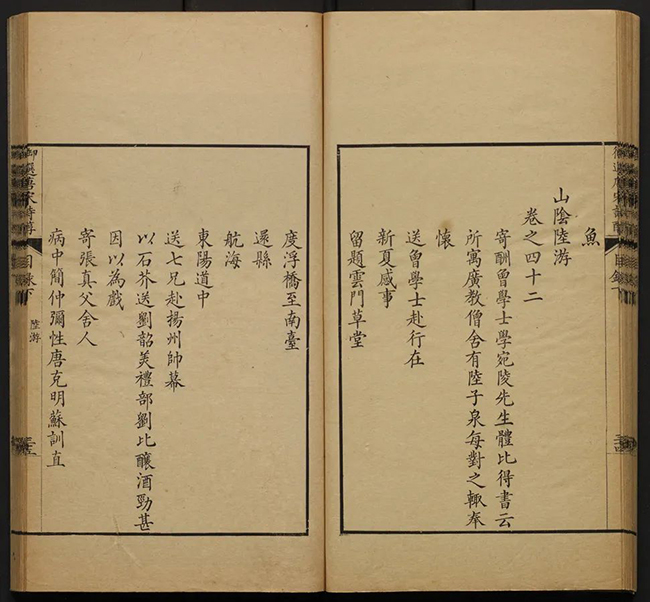 御選唐宋詩醇 目錄下
魚
山陰陸游
卷之四十二
寄酬曾學士學宛陵先生體比得書云
所寓廣教僧舍有陸子泉每對之輒奉
懷
送曾學士赴行在
新夏感事
留題雲門草堂
度浮橋至南臺
還縣
航海
東陽道中
送七兄赴揚州帥幕
以石芥送劉韶美禮部劉比釀酒勁甚
因以為戲
寄張真父舍人
病中簡仲彌性唐克明蘇訓直
御選唐宋詩醇 目錄下 陸游